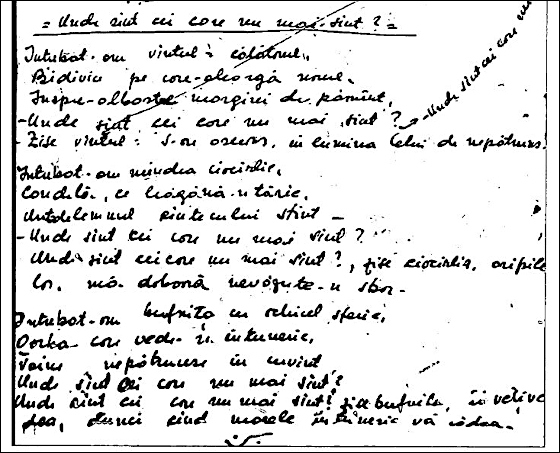 = Unde sînt cei care nu mai sînt? =
Întrebat-am vîntul: călătorul,
Bidiviu pe care-aleargă norul,
Înspre-albastre margini de pămînt,
- Unde sînt cei care nu mai sînt? - Unde sînt cei care nu
- Zise vîntul: s-au ascuns, în lumina Celui de nepătruns.
Întrebat-am mîndra ciocîrlie,
Candelă, ce leagănă-n tărie,
Untdelemnul cîntecului sfînt -
- Unde sînt cei care nu mai sînt?
Unde sînt cei care nu mai sînt?, zise ciocîrlia, aripile
lor, mă doboră nevăzute-n sbor.
Întrebat-am bufnița cu ochiul sferic,
Oarba care vede-n întuneric,
Taine nepătrunse în cuvînt
Unde sînt cei care nu mai sînt?
Unde sînt cei care nu mai sînt? zice bufnița,
atunci cînd marele întuneric vă cădea.